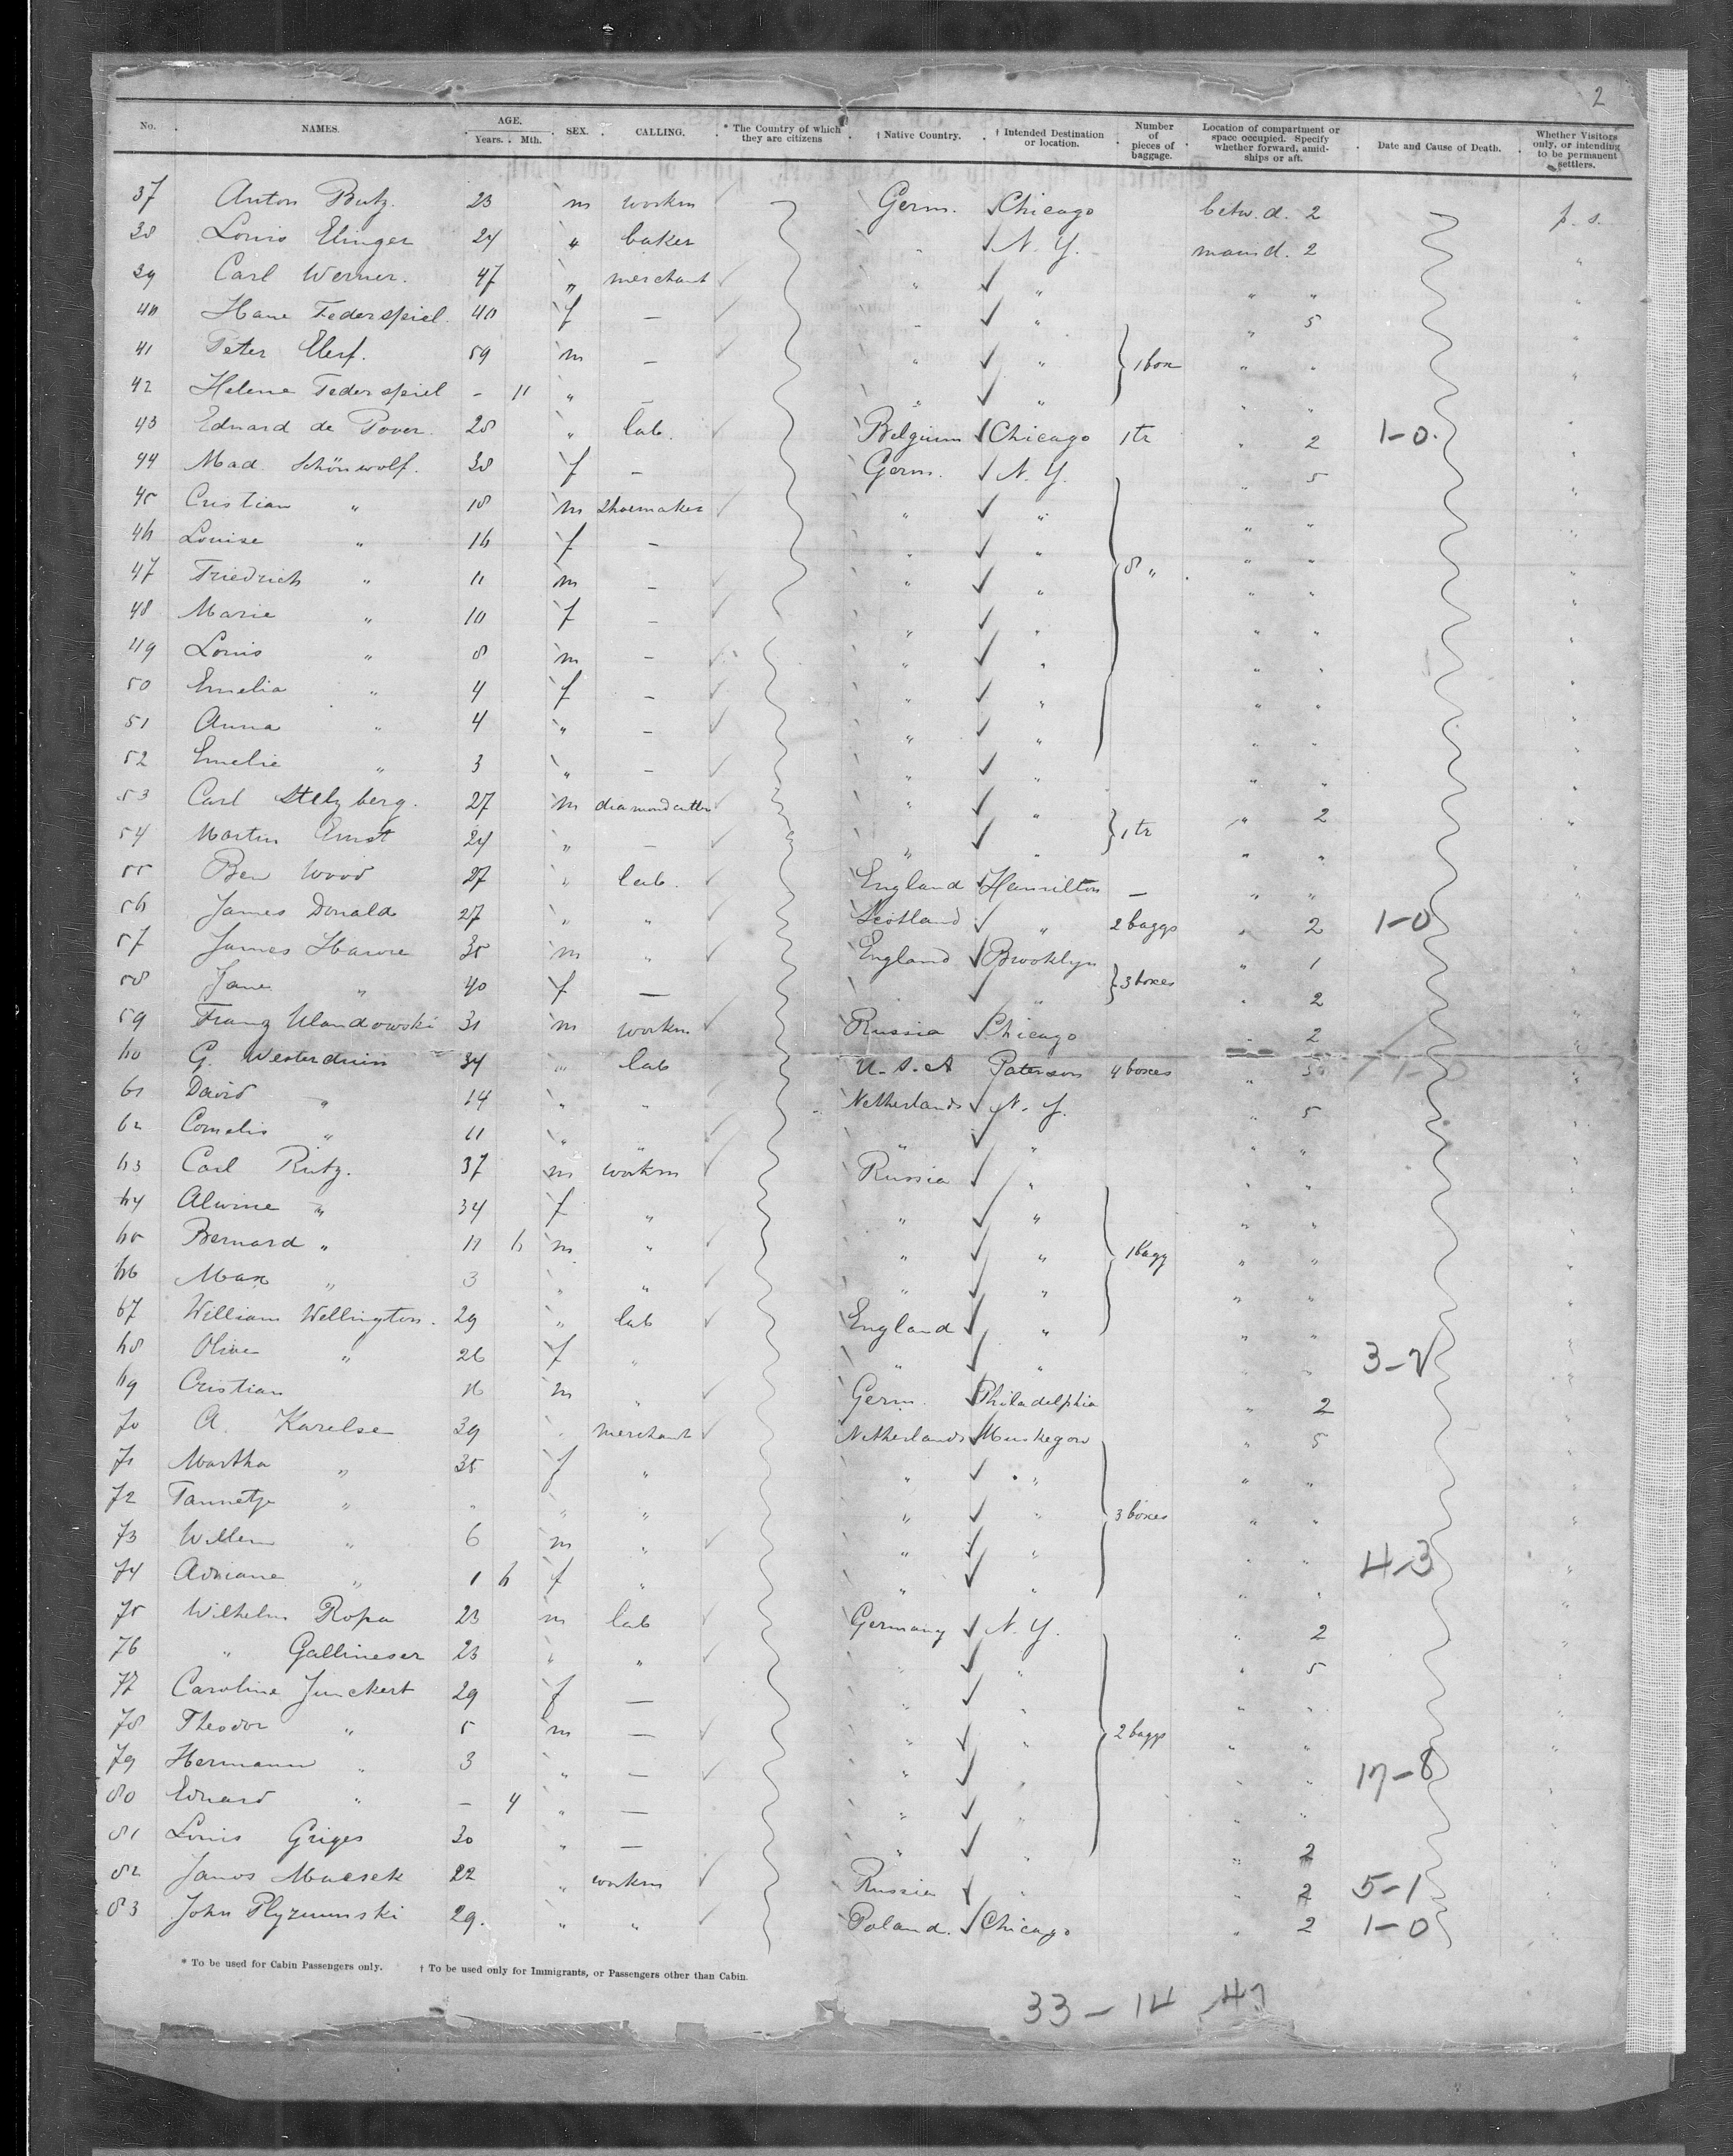 2
No. NAMES. AGE. Years. Mth. SEX. CALLING. * The Country of which they are citizens † Native Country. † Intended Destination or location. Number of pieces of baggage. Location of compartment or space occupied. Specify whether forward, amidships or aft. Date and Cause of Death. Whether Visitors only, or intending to be permanent settlers.
37 Anton Butz. 23 m workm Germ. Chicago betw. d. 2 p. s.
38 Louis Elinger 24 " baker " N. Y. maind. 2 "
39 Carl Werner. 47 " merchant " " " " "
40 Hane Federspiel. 40 f — " " " 5 "
41 Peter Elerf. 59 m — " " 1 box " " "
42 Helene Federspiel - 11 " — " " " " "
43 Eduard de Pover. 28 " lab. Belgium Chicago 1 tr " 2 1-0. "
44 Mad. Schönwolf. 38 f — Germ. N. Y. " 5 "
45 Cristian " 18 m shoemaker " " " " "
46 Louise " 16 f — " " " " "
47 Friedrich " 11 m — " " 8 " " " "
48 Marie " 10 f — " " " " "
49 Louis " 8 m — " " " " "
50 Emelia " 4 f — " " " " "
51 Anna " 4 " — " " " " "
52 Emelie " 3 " — " " " " "
53 Carl Stelzberg. 27 m diamondcutter " " " 2 "
54 Martin Ernst 24 " — " " 1 tr " " "
55 Ben Wood 27 " lab. England Hamilton — " " "
56 James Donald 27 " " Scotland " 2 baggs " 2 1-0 "
57 James Hawre 35 m " England Brooklyn " 1 "
58 Jane " 40 f — " " 3 boxes " 2 "
59 Franz Ulandowski 31 m workm Russia Chicago " 2 "
60 G. Westerduin 34 " lab U. S. A Paterson 4 boxes " 5 1-0 "
61 David " 14 " " Netherlands N. Y. " 5 "
62 Cornelis " 11 " " " " " " "
63 Carl Rutz. 37 m workm Russia " " " "
64 Alwine " 34 f " " " " " "
65 Bernard " 11 6 m " " " 1 bagg " " "
66 Max " 3 " " " " " " "
67 William Wellington. 29 " lab England " " " "
68 Olive " 26 f " " " " " 3-2 "
69 Cristian 16 m " Germ. Philadelphia " 2 "
70 A. Karelse 39 " merchant Netherlands Muskegon " 5 "
71 Martha " 35 f " " " " " "
72 Tannetje " " " " " " 3 boxes " " "
73 Willem " 6 m " " " " " "
74 Adriane " 1 6 f " " " " " 4-3 "
75 Wilhelm Ropa 23 m lab Germany N. Y. " 2 "
76 " Gallineser 23 " " " " " 5 "
77 Caroline Junckert 29 f — " " " " "
78 Theodor " 5 m — " " 2 baggs " " "
79 Hermann " 3 " — " " " " 17-8 "
80 Eduard " — 4 " — " " " " "
81 Louis Griges 30 " — " " " 2 "
82 Janos Mucsek 22 " workm Russia " " 2 5-1 "
83 John Plyzumski 29. " " Poland. Chicago " 2 1-0 "
* To be used for Cabin Passengers only. † To be used only for Immigrants, or Passengers other than Cabin.
33-14 47